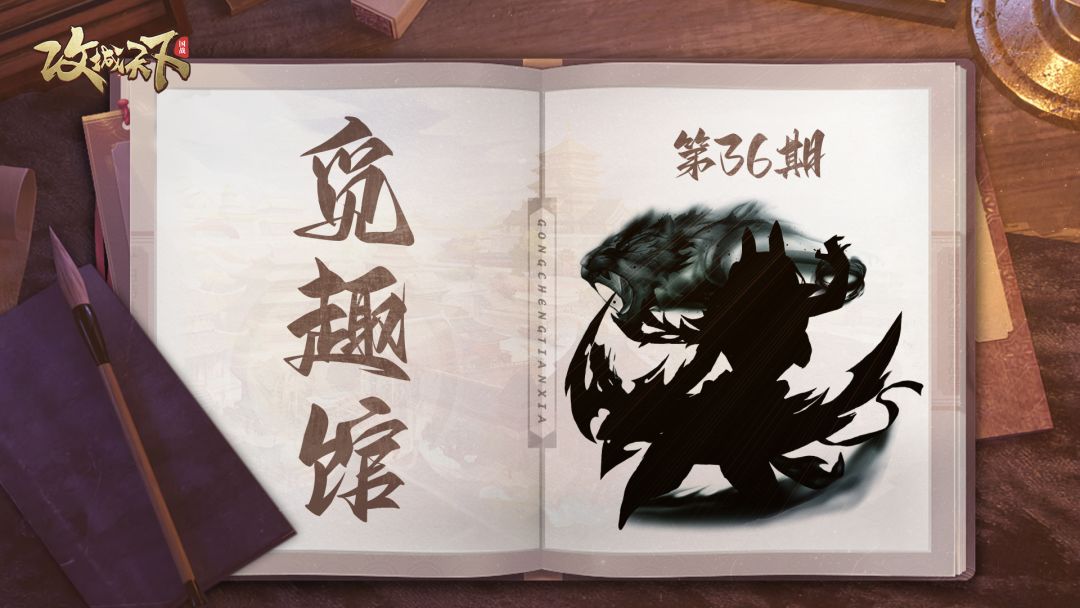 攻城天下
国战
觅趣馆
GONGCHENGTIANXIA
第36期